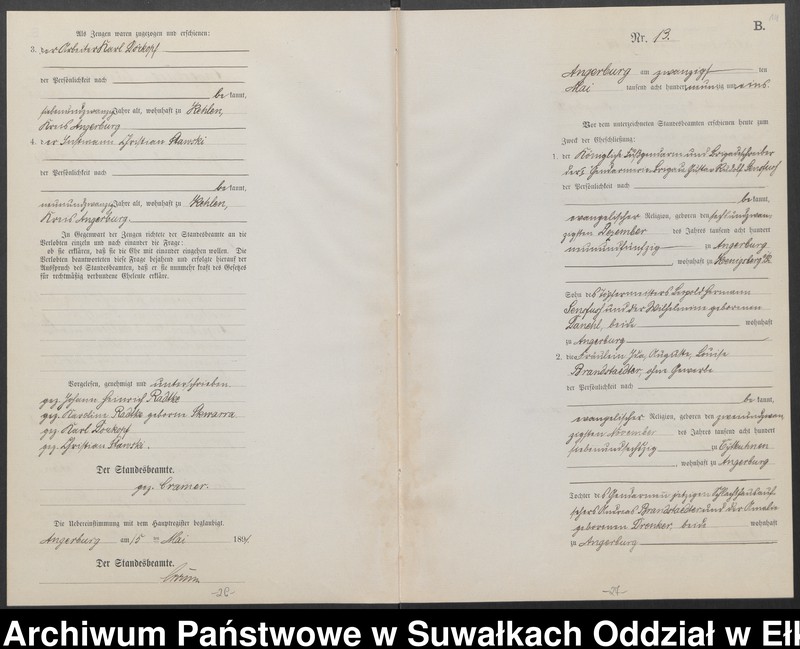 Als Zeugen waren zugezogen und erschienen:
3. der Arbeiter Karl Dockopf
der Persönlichkeit nach
be kannt,
siebenundzwanzig Jahre alt, wohnhaft zu Kehlen,
Kreis Angerburg
4. der Instmann Christian Stanski
der Persönlichkeit nach
be kannt,
neunundzwanzig Jahre alt, wohnhaft zu Kehlen,
Kreis Angerburg.
In Gegenwart der Zeugen richtete der Standesbeamte an die
Verlobten einzeln und nach einander die Frage:
ob sie erklären, daß sie die Ehe mit einander eingehen wollen. Die
Verlobten beantworteten diese Frage bejahend und erfolgte hierauf der
Ausspruch des Standesbeamten, daß er sie nunmehr kraft des Gesetzes
für rechtmäßig verbundene Eheleute erkläre.
Vorgelesen, genehmigt und unterschrieben
gez. Johann Heinrich Radtke
gez. Karoline Radtke geborene Skwarra
gez. Karl Dockopf
gez. Christian Stanski.
Der Standesbeamte.
gez. Cramer.
Die Uebereinstimmung mit dem Hauptregister beglaubigt.
Angerburg am 15 ten Mai 1891
Der Standesbeamte.
-26-
B.
Nr. 13.
Angerburg am zwanzigsten
Mai tausend acht hundert neunzig und eins.
Vor dem unterzeichneten Standesbeamten erschienen heute zum
Zweck der Eheschließung:
1. der Königliche Fußgendarm und Brigadeschreiber
der Gendarmerie Brigade Gustav Rudolf Senffuß
der Persönlichkeit nach
be kannt,
evangelischer Religion, geboren den sechsundzwan-
zigsten Dezember des Jahres tausend acht hundert
neunundfünfzig zu Angerburg
, wohnhaft zu Koenigsberg
Sohn des Töpfermeisters Leopold Hermann
Senffuß und der Wilhelmine geborenen
beide wohnhaft
zu Angerburg
2. die Fräulein Ida, Auguste, Louise
Brandstaedter, ohne Gewerbe
der Persönlichkeit nach
be kannt,
evangelischer Religion, geboren den zweiundzwan-
zigsten November des Jahres tausend acht hundert
siebenundsechszig zu Eydtkuhnen
, wohnhaft zu Angerburg
Tochter des Gendarmen jetzigen Schlachthausauf-
sehers Andreas Brandstaedter und der Amalie
geborenen Drenker, beide wohnhaft
zu Angerburg
-27-
Archiwum Państwowe w Suwałkach Oddział w Ełk